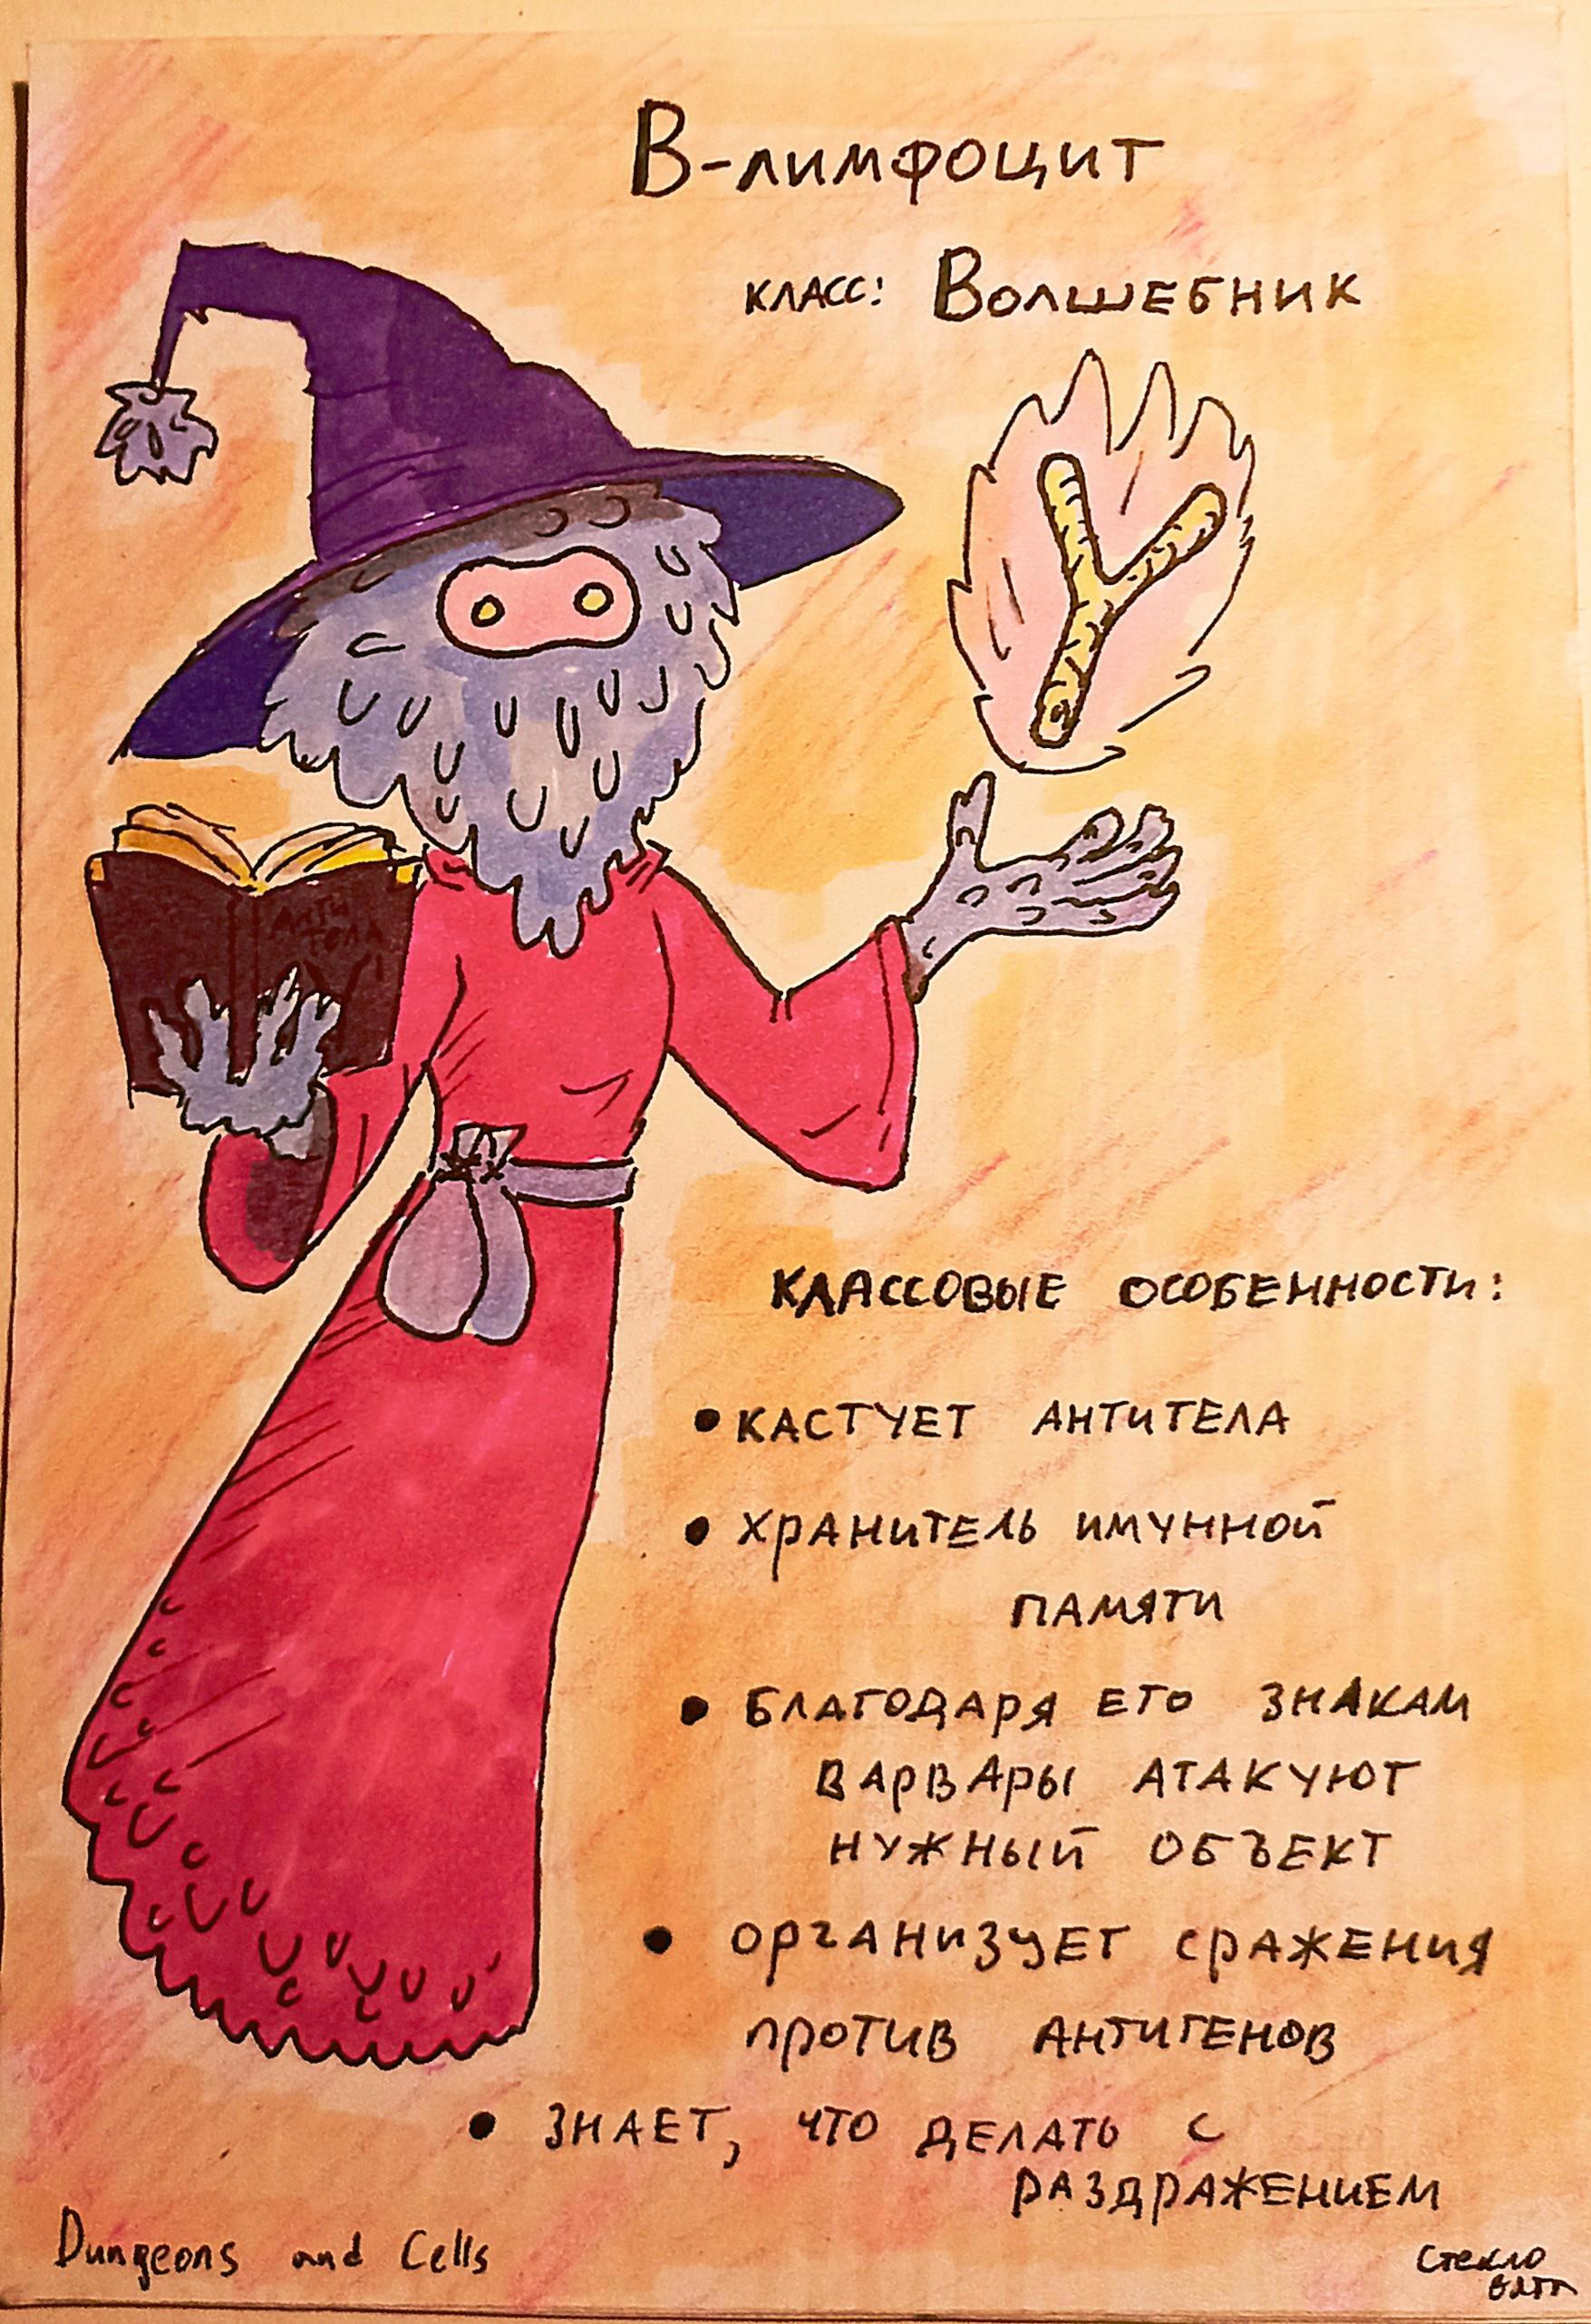 В-лимфоцит
класс: Волшебник
АНТИ
ТЕЛА
КЛАССОВЫЕ ОСОБЕННОСТИ:
• КАСТУЕТ АНТИТЕЛА
• ХРАНИТЕЛЬ ИМУННОЙ
ПАМЯТИ
• БЛАГОДАРЯ ЕГО ЗНАКАМ
ВАРВАРЫ АТАКУЮТ
НУЖНЫЙ ОБЪЕКТ
• ОРГАНИЗУЕТ СРАЖЕНИЯ
ПРОТИВ АНТИГЕНОВ
• ЗНАЕТ, ЧТО ДЕЛАТЬ С
РАЗДРАЖЕНИЕМ
Dungeons and Cells
Стекло